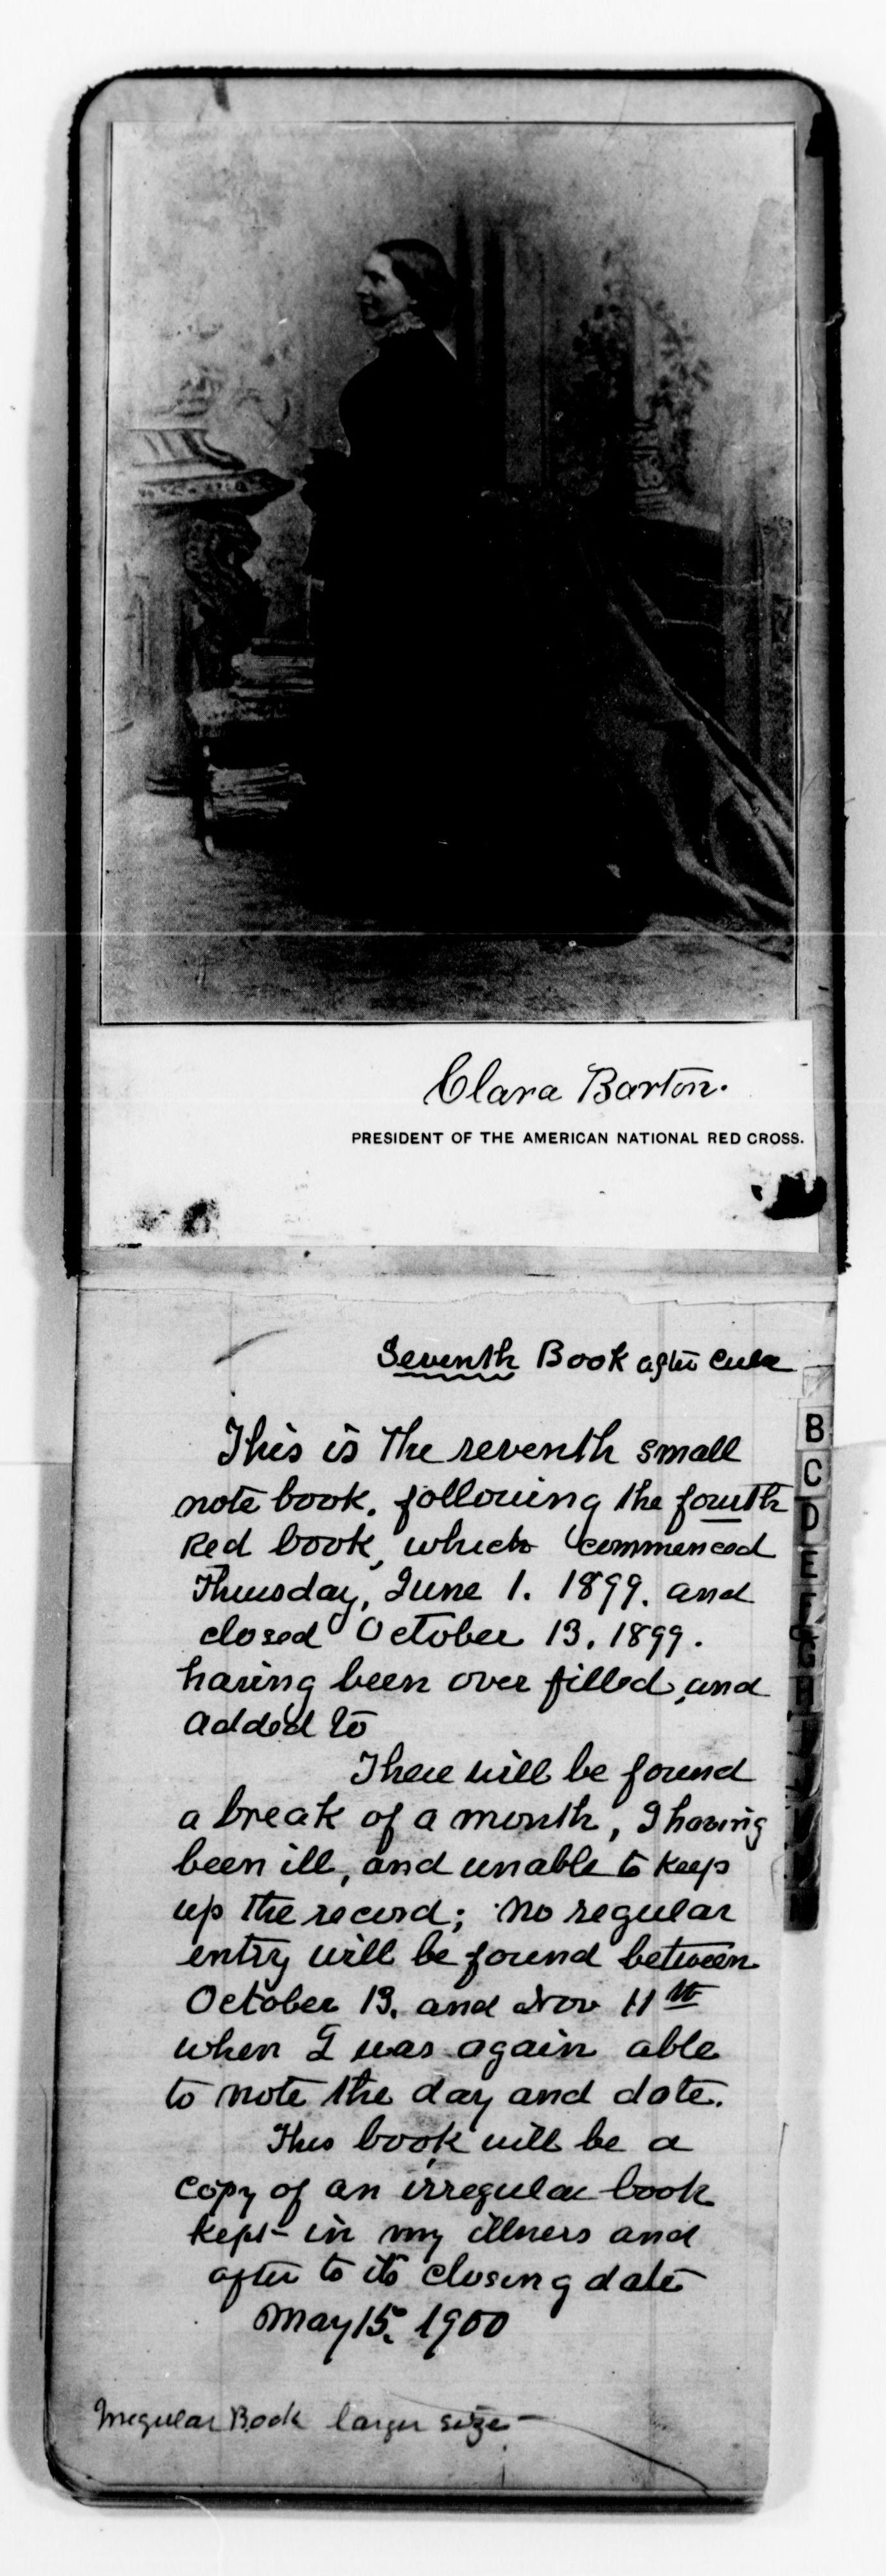 Clara Barton.
PRESIDENT OF THE AMERICAN NATIONAL RED CROSS.
Seventh Book after Cuba
This is the seventh small
note book, following the fourth
Red book, which commenced
Thursday, June 1. 1899. and
closed October 13. 1899.
having been over filled, and
added to
There will be found
a break of a month, I having
been ill, and unable to keep
up the record; no regular
entry will be found between
October 13. and Nov 11th
when I was again able
to note the day and date.
This book will be a
copy of an irregular book
kept in my illness and
after to its closing date
May 15. 1900
Irregular Book larger size
B
C
D
E
F
G
H